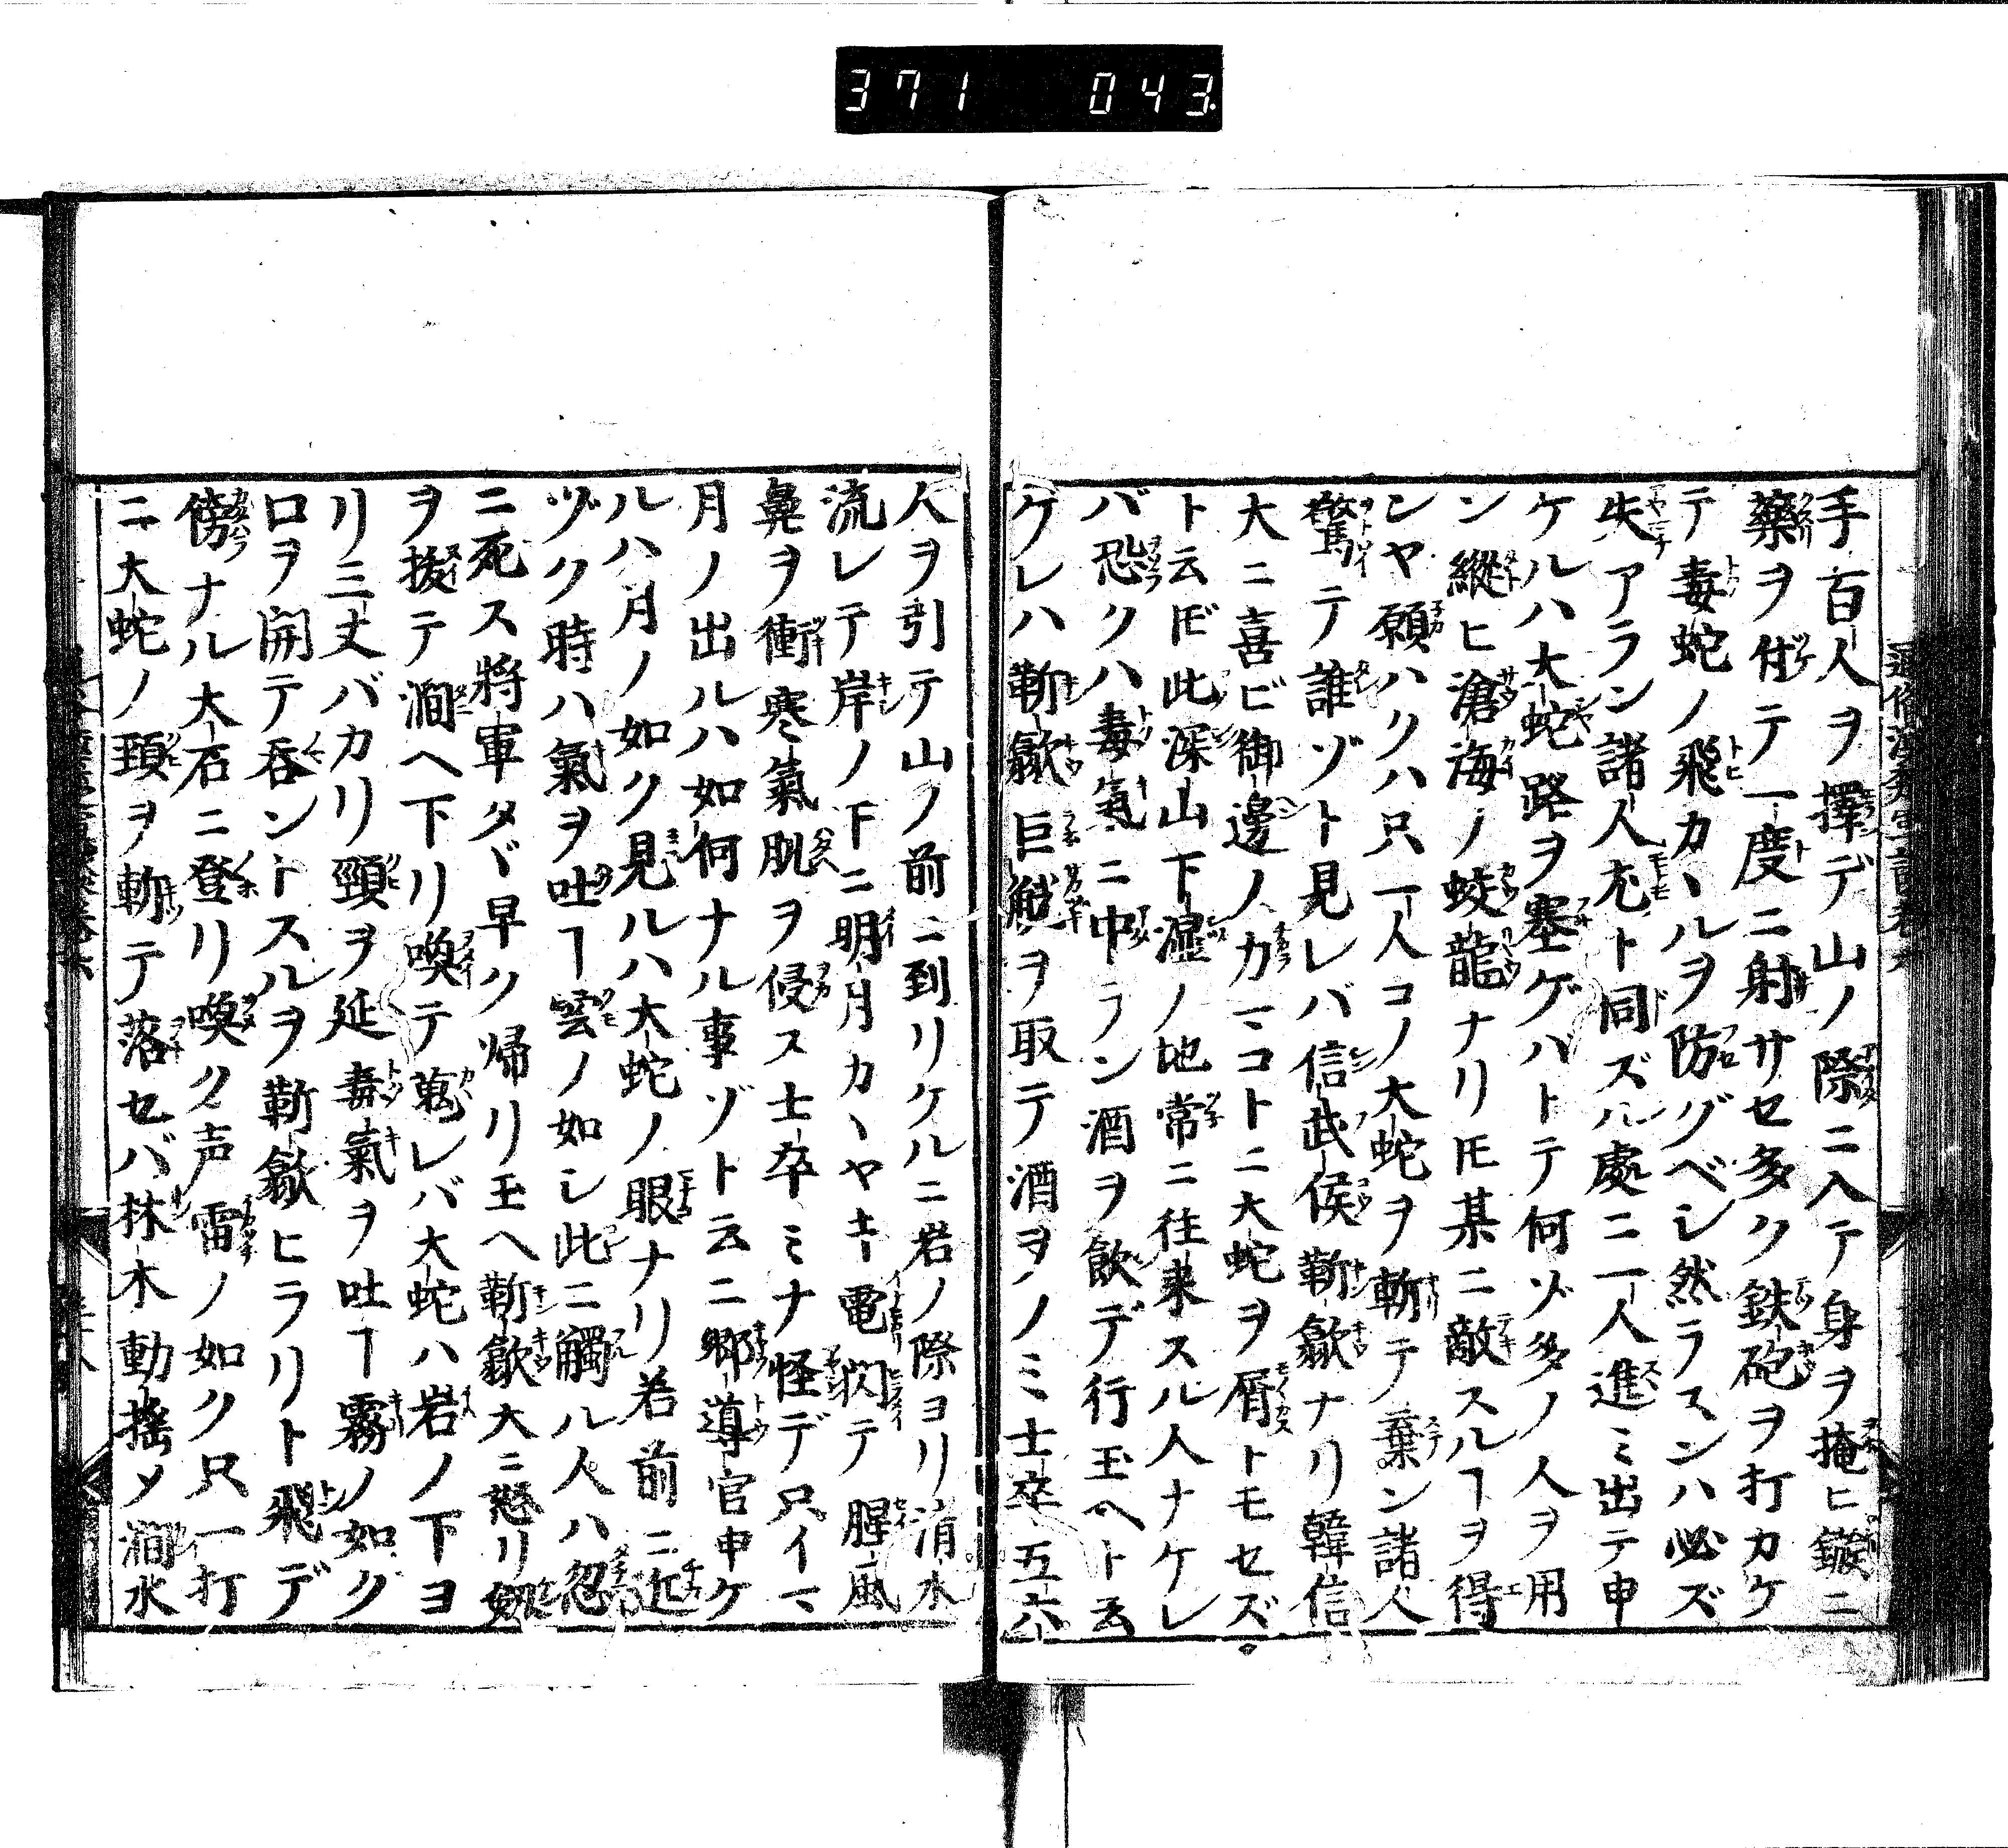 371 043.
手百人ヲ擇デ山ノ際ニ入テ身ヲ掩ヒ鏃ニ
藥ヲ付テ一度ニ射サセ多ク鉄砲ヲ打カケ
テ毒蛇ノ飛カヽルヲ防グベシ然ラズンハ必ズ
失アラン諸人尤ト同ズル處ニ一人進ミ出テ申
ケルハ大蛇路ヲ塞ゲバトテ何ゾ多ノ人ヲ用
ン縱ヒ滄海ノ蛟龍ナリ𪜈某ニ敵スルヿヲ得
ンヤ願ハクハ只一人コノ大蛇ヲ斬テ棄ン諸人
驚テ誰ゾト見レバ信武侯靳歙ナリ韓信
大ニ喜ビ御邊ノ力マコトニ大蛇ヲ屑トモセズ。
ト云𪜈此深山下濕ノ地常ニ往来スル人ナケレ
バ恐クハ毒氣ニ中ラン酒ヲ飲デ行玉ヘト云
ケレハ靳歙巨觥ヲ取テ酒ヲノミ士卒五六
人ヲ引テ山ノ前ニ到リケルニ岩ノ際ヨリ涓水
流レテ岸ノ下ニ明月カヽヤキ電閃テ腥風
鼻ヲ衝寒氣肌ヲ侵ス士卒ミナ怪デ只イマ
月ノ出ルハ如何ナル事ゾト云ニ郷導官申ケ
ルハ月ノ如ク見ルハ大蛇ノ眼ナリ若前ニ近
ヅク時ハ氣ヲ吐ヿ雲ノ如シ此ニ觸ル人ハ忽
ニ死ス將軍タヾ早ク帰リ玉ヘ靳歙大ニ怒リ劔
ヲ拔テ澗ヘ下リ喚テ蒐レバ大蛇ハ岩ノ下ヨ
リ三丈バカリ頸ヲ延毒氣ヲ吐ヿ霧ノ如ク
口ヲ開テ呑ントスルヲ靳歙ヒラリト飛デ
傍ナル大石ニ登リ喚ク声雷ノ如ク只一打
ニ大蛇ノ頸ヲ斬テ落セバ林木動揺メ澗水